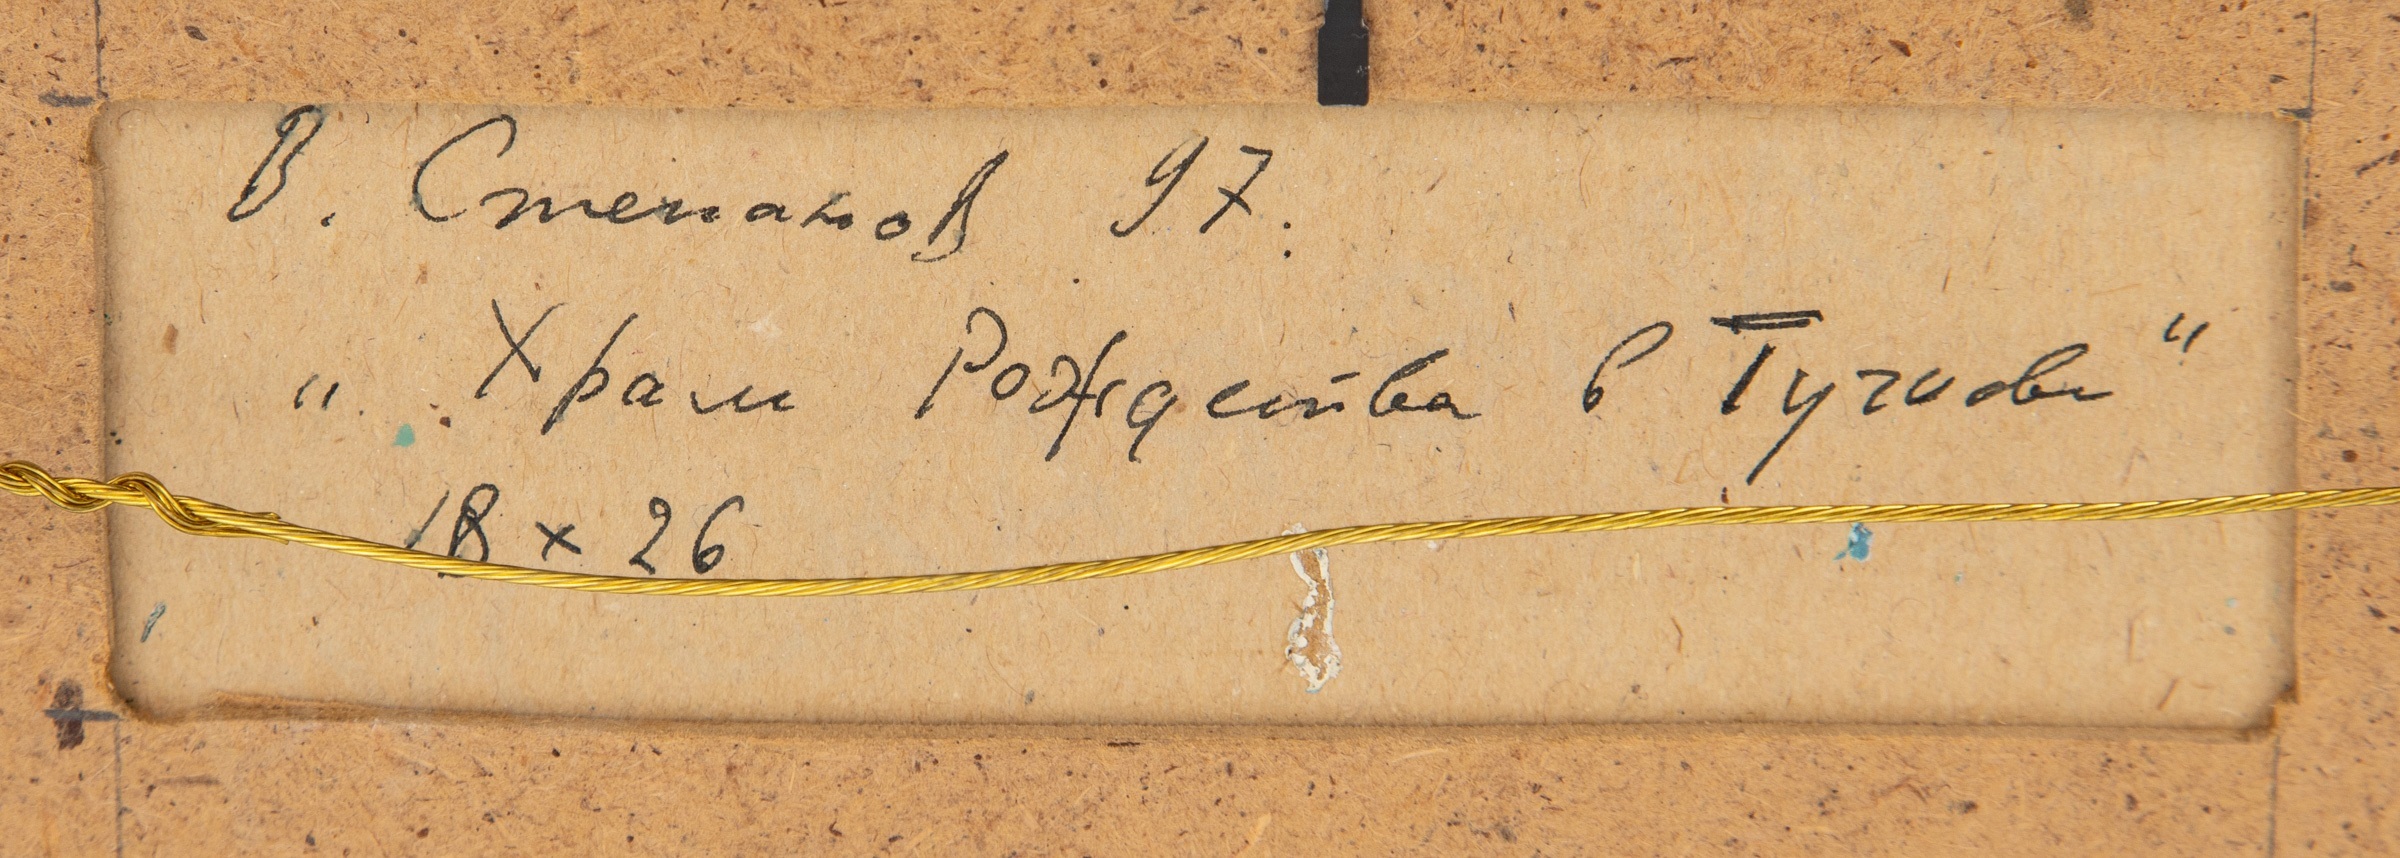 В. Степанов 97.
" Храм Рождества в Тучкове "
18 × 26